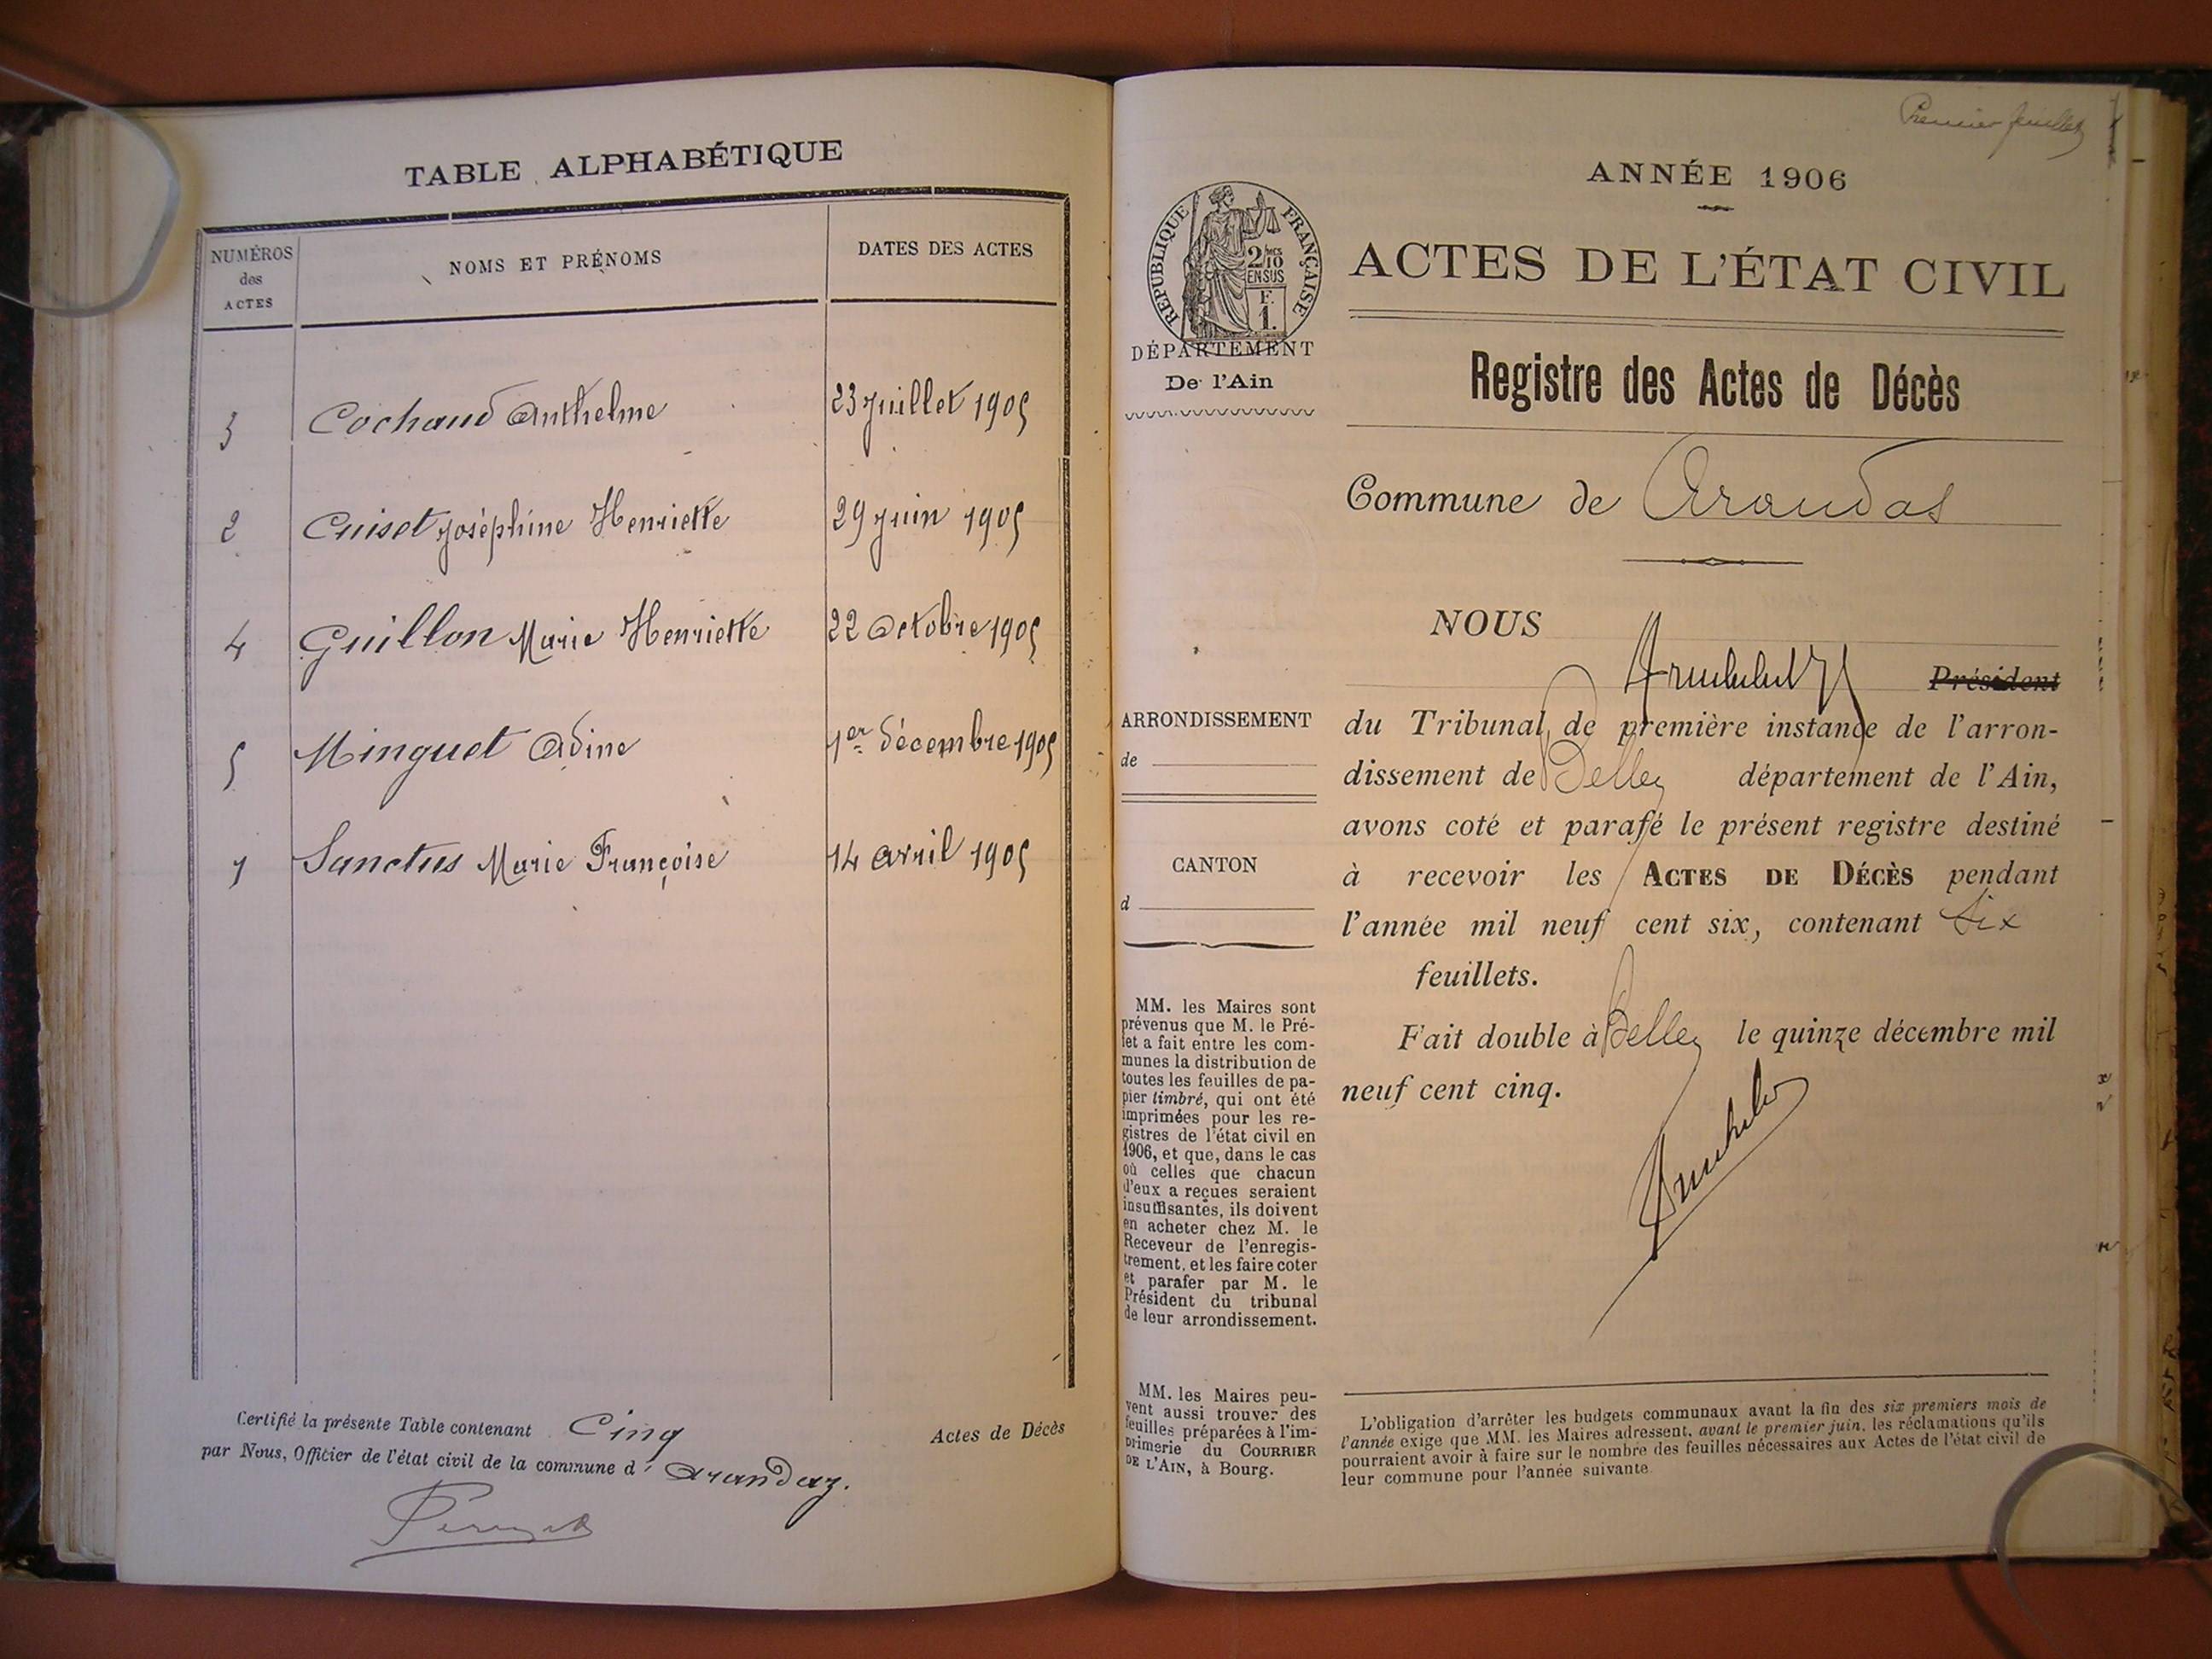 TABLE ALPHABÉTIQUE
NUMÉROS des ACTES
NOMS ET PRÉNOMS
DATES DES ACTES
3 Cochaud Anthelme 23 juillet 1905
2 Cuiset Joséphine Henriette 29 juin 1905
4 Guillon Marie Henriette 22 Octobre 1905
5 Minguet Adine 1er décembre 1905
1 Sanctus Marie Françoise 14 avril 1905
Certifié la présente Table contenant Cinq Actes de Décès
par Nous, Officier de l'état civil de la commune d' Arandaz.
Premier feuillet
ANNÉE 1906
RÉPUBLIQUE FRANÇAISE
2/10
EN SUS
F.
1.
ACTES DE L'ÉTAT CIVIL
DÉPARTEMENT
De l'Ain
Registre des Actes de Décès
Commune de Arandas
NOUS
Président
du Tribunal de première instance de l'arron-
dissement de Belley département de l'Ain,
avons coté et parafé le présent registre destiné
à recevoir les ACTES DE DÉCÈS pendant
l'année mil neuf cent six, contenant Six
feuillets.
Fait double à Belley le quinze décembre mil
neuf cent cinq.
ARRONDISSEMENT
de
CANTON
d
MM. les Maires sont
prévenus que M. le Pré-
fet a fait entre les com-
munes la distribution de
toutes les feuilles de pa-
pier timbré, qui ont été
imprimées pour les re-
gistres de l'état civil en
1906, et que, dans le cas
où celles que chacun
d'eux a reçues seraient
insuffisantes, ils doivent
en acheter chez M. le
Receveur de l'enregis-
trement, et les faire coter
et parafer par M. le
Président du tribunal
de leur arrondissement.
MM. les Maires peu-
vent aussi trouver des
feuilles préparées à l'im-
primerie du COURRIER
DE L'AIN, à Bourg.
L'obligation d'arrêter les budgets communaux avant la fin des six premiers mois de
l'année exige que MM. les Maires adressent, avant le premier juin, les réclamations qu'ils
pourraient avoir à faire sur le nombre des feuilles nécessaires aux Actes de l'état civil de
leur commune pour l'année suivante.